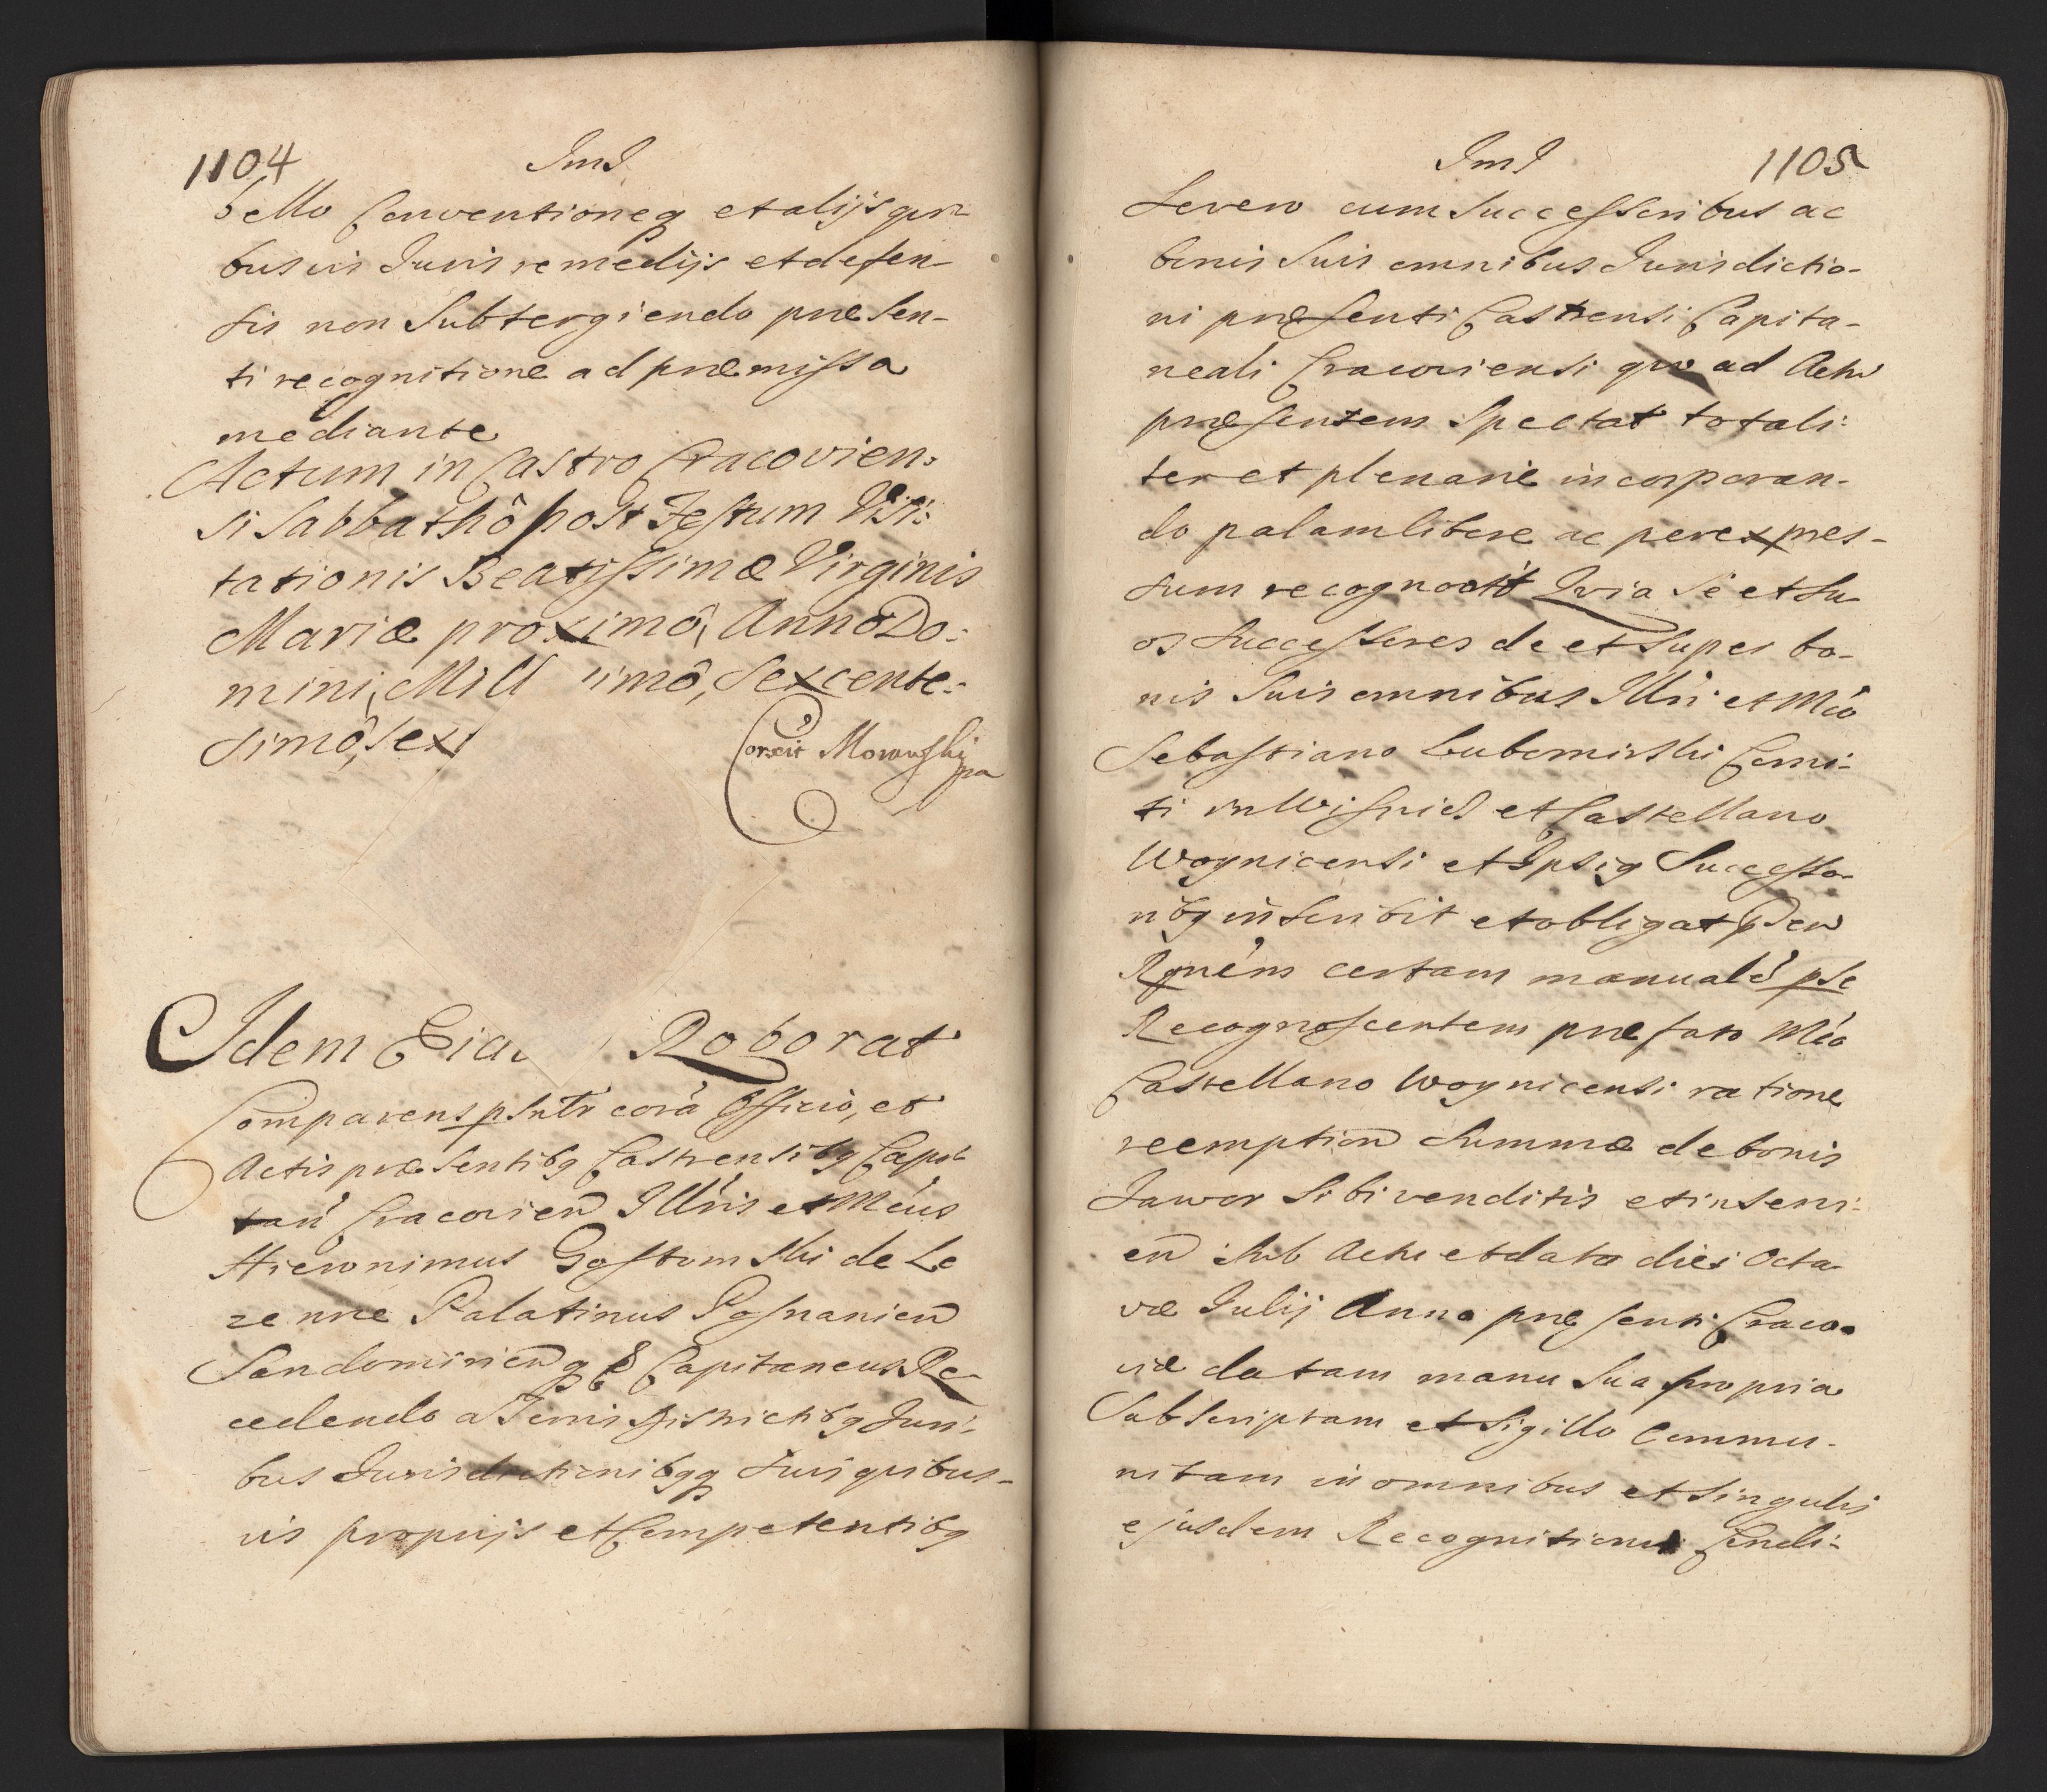 1104
bello Conventioneq et alijs qui-
busvis Juris remedijs et defen-
sis non Subtergiendo præsen-
ti recognitione ad præmissa
mediante
Actum in Castro Cracovien:
si Sabbathô post Festum Visi:
tationis Beatissimæ Virginis
Mariæ proximô, Annô Do:
mini, Mill simô, Sexcente:
simô, sex
Correxit Morawski
Idem Roborat
Comparens psntr corā Officio, et
Actis præsentibq Castrensibq Capi
tan Cracovien Illris et Mcus
Hieronimus Gostomski de Le
zenice Palatinus Posnanien
Sandomirienq Capitaneus Re-
cedendo a Terris Districtibq Juri:
bus Jurisdictionibqq suis quibus-
vis proprijs et Competentibq
1105
Severo cum Successoribus ac
bonis Suis omnibus Jurisdictio-
ni præsenti Castrensi Capita-
neali Cracoviensi quo ad Actu
præsentem Spectat totali:
ter et plenarie incorporan-
do palam libere ac per expres-
sum recognovit Quia Se et Su
os Successores de et super bo-
nis Suis omnibus Illri et Mco
Sebastiano Lubomirski Comi:
ti in Wisnicz et Castellano
Woynicensi et Ipsiq Successo-
ribq inscribit et obligat
certam manuale pse
Recognoscentem præfato Mco
Castellano Woynicensi ratione
reemption Summæ de bonis
Jawor Sibi venditis et inscri:
en Sub Actu et data diei Octa
væ Julij Anno præsenti Craco-
viæ datam manu Sua propria
Subscriptam et Sigillo Commu-
nitam in omnibus et Singulis
ejusdem Recognitionis Condi: